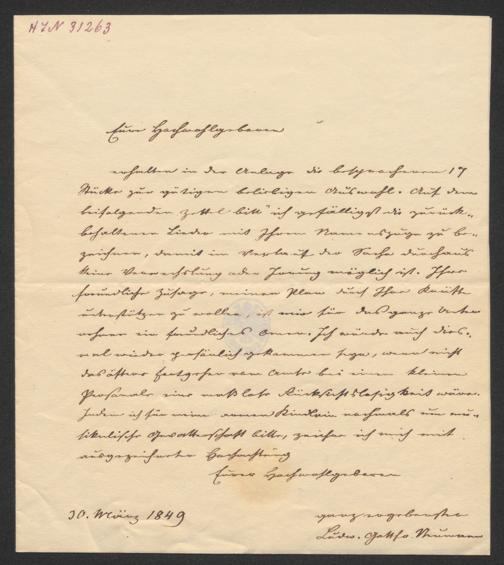 HIN 31263
Eure Hochwohlgeboren
erhalten in der Anlage die besprochenen 17
Stücke zur gütigen beliebigen Auswahl. Auf dem
beifolgenden Zettel bitt' ich gefälligst die zurück-
behaltenen Lieder mit Ihrem Namenszuge zu be-
zeichnen, damit im Verlauf der Sache durchaus
keine Verwechslung oder Irrung möglich ist. Ihre
freundliche Zusage, meinen Plan durch Ihre Kräfte
unterstützen zu wollen, ist mir für das ganze Unter
nehmen ein freundliches Omen. Ich würde auch dies-
mal wieder persönlich gekommen seyn, wenn nicht
das öftere Fortgehen vom Amte bei einem kleinen
Personale eine maßlose Rücksichtslosigkeit wäre.
Indem ich für meine armen Kindlein nochmals um mu-
sikalische Gevatterschaft bitte, zeichne ich mich mit
ausgezeichneter Hochachtung
Eurer Hochwohlgeboren
30. März 1849
ganz ergebenster
Ludw. Gottfr. Neumann